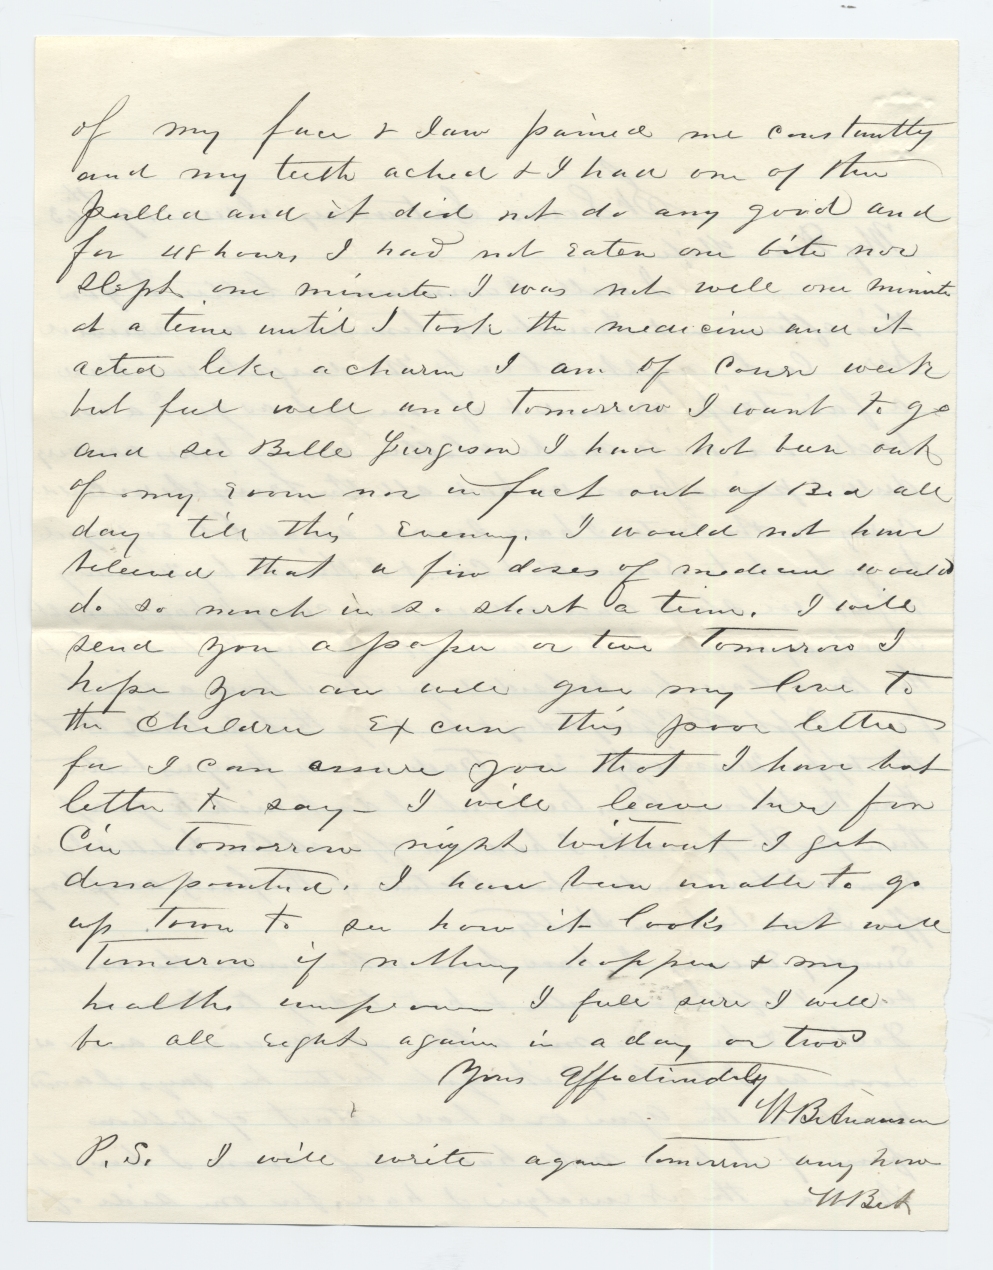 of my face & Jaw pained me constantly
and my teeth ached & I had one of them
pulled and it did not do any good and
for 48 hours I had not Eaten one bite nor
slept one minute. I was not well one minute
at a time until I took the medicine and it
acted like a charm I am of Course weak
but feel well and tomorrow I want to go
and see Belle Yurgison I have not been out
of my room nor in fact out of Bed all
day till this Evening. I would not have
beleived that a few doses of medicine would
do so much in so short a time. I will
send you a paper or two Tomorrow I
hope you are well give my love to
the children Excuse this poor letter
for I can assure you that I have but
little to say - I will leave here for
Cin Tomorrow night without I get
dissapointed. I have been unable to go
up Town to see how it looks but will
Tomorrow if nothing happen & my
healths improve I feel sure I will
be all right again in a day or two
Yours Affectionately
P.S. I will write again Tomorrow any how